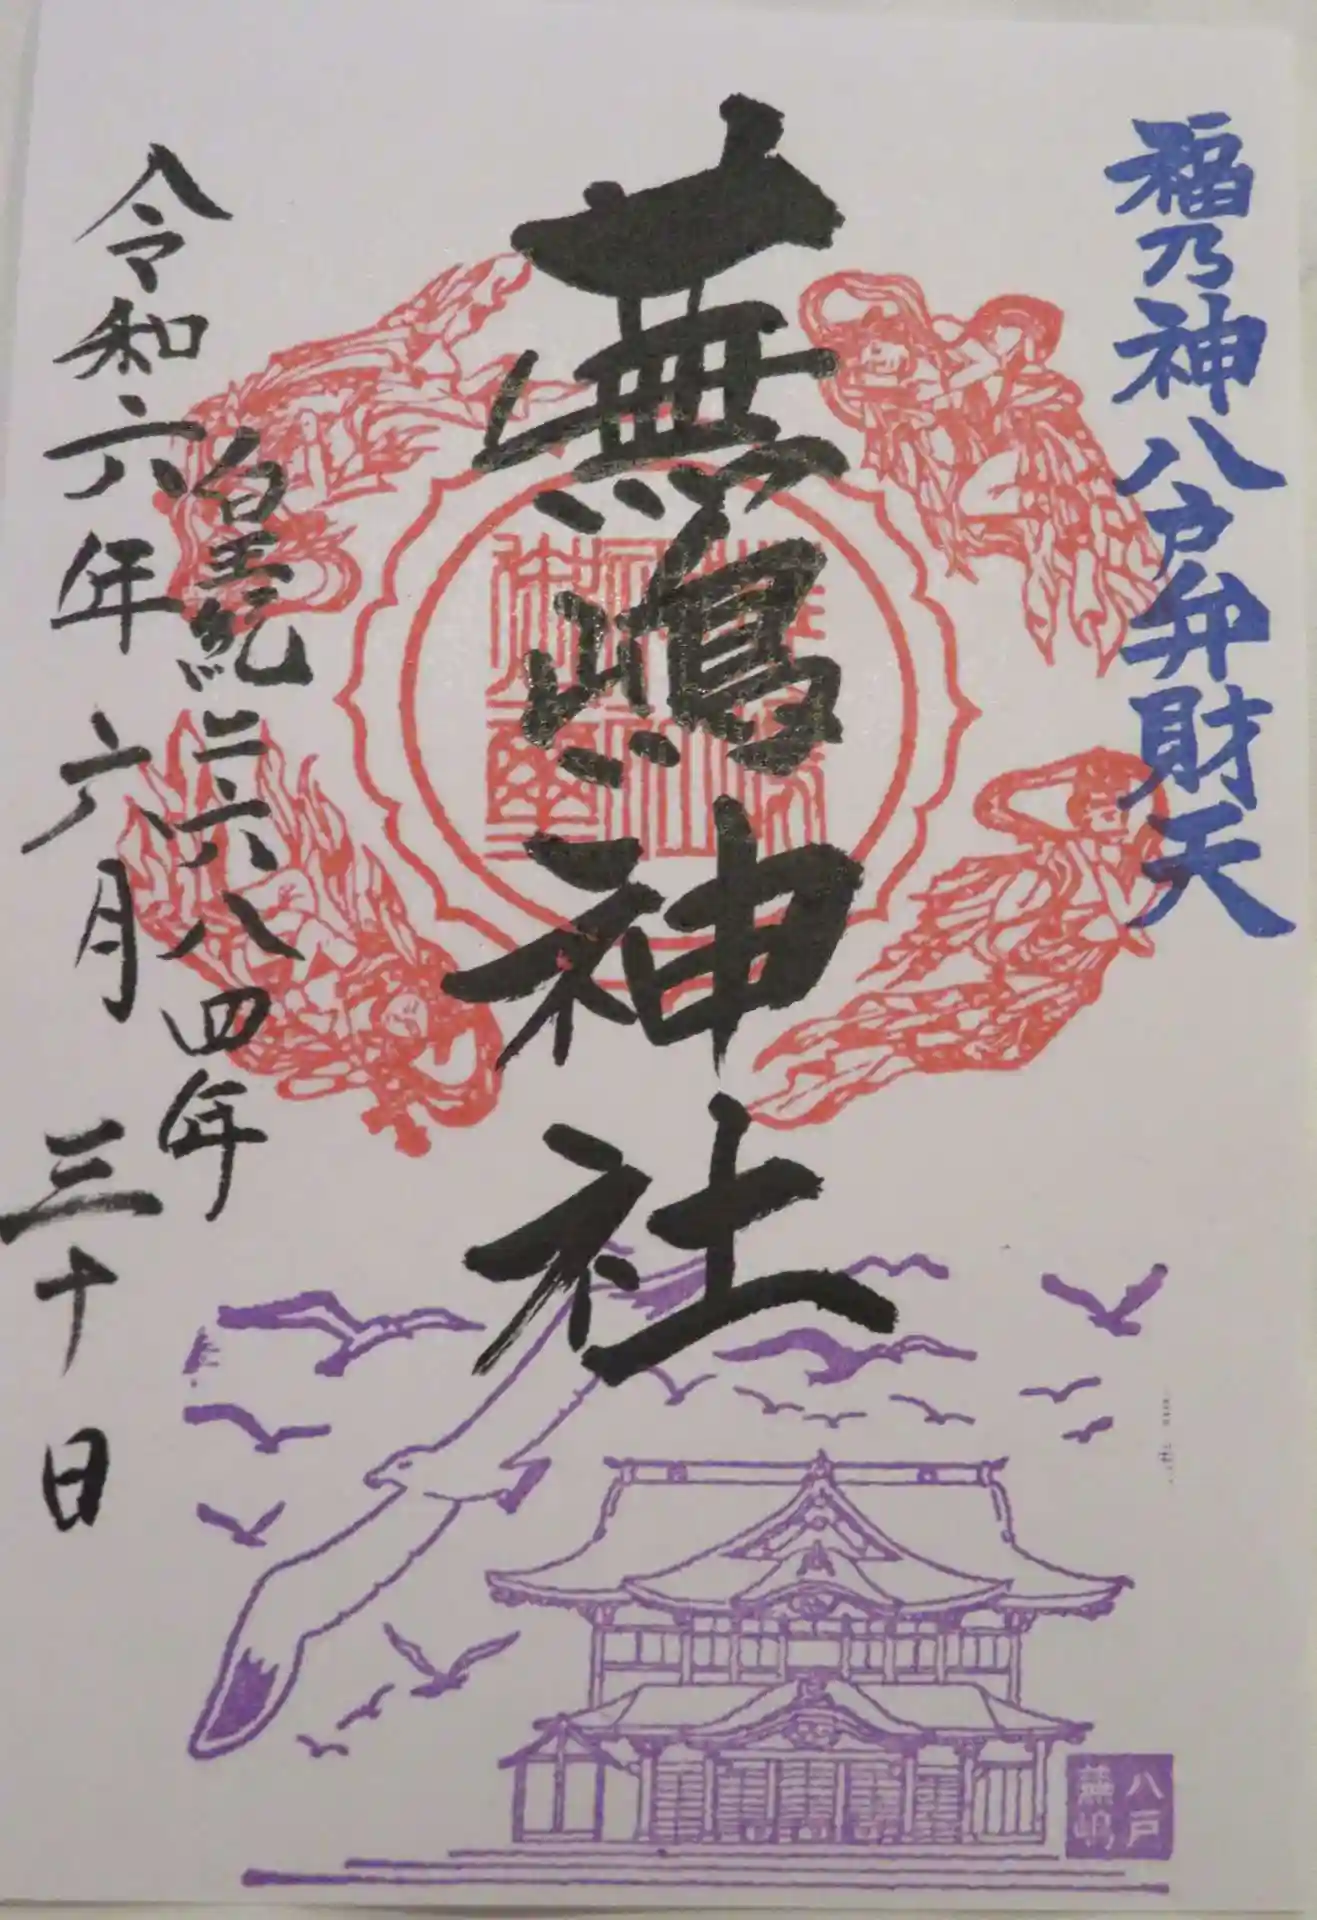 福乃神八戸弁財天
蕪嶋神社
皇紀二六八四年
令和六年 六月 三十日
八戸
蕪嶋